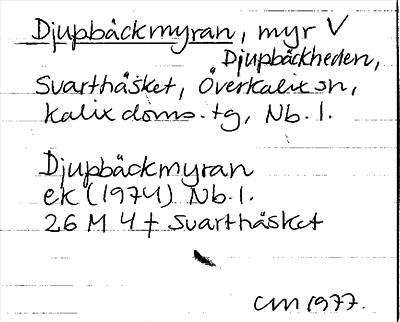 Djupbäckmyran, myr V
Djupbäckheden,
Svarthåsket, Överkalix sn,
Kalix doms. tg, Nb. l.
Djupbäckmyran
ek (1974) Nb. l.
26 M 4 f Svarthåsket
CM 1977.